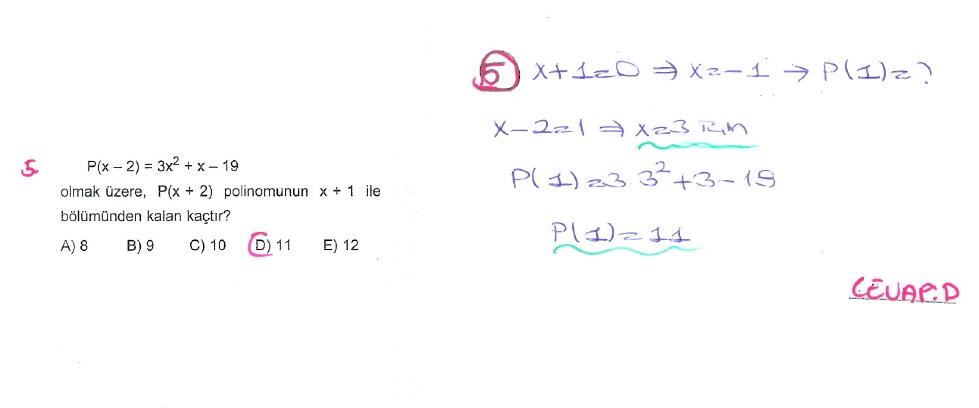 5. P(x – 2) = 3x² + x – 19
olmak üzere, P(x + 2) polinomunun x + 1 ile
bölümünden kalan kaçtır?
A) 8 B) 9 C) 10 D) 11 E) 12
5 x+1=0 ⇒ x=-1 → P(1)=?
x-2=1 ⇒ x=3 için
P(1)=3.3²+3-19
P(1)=11
CEVAP:D